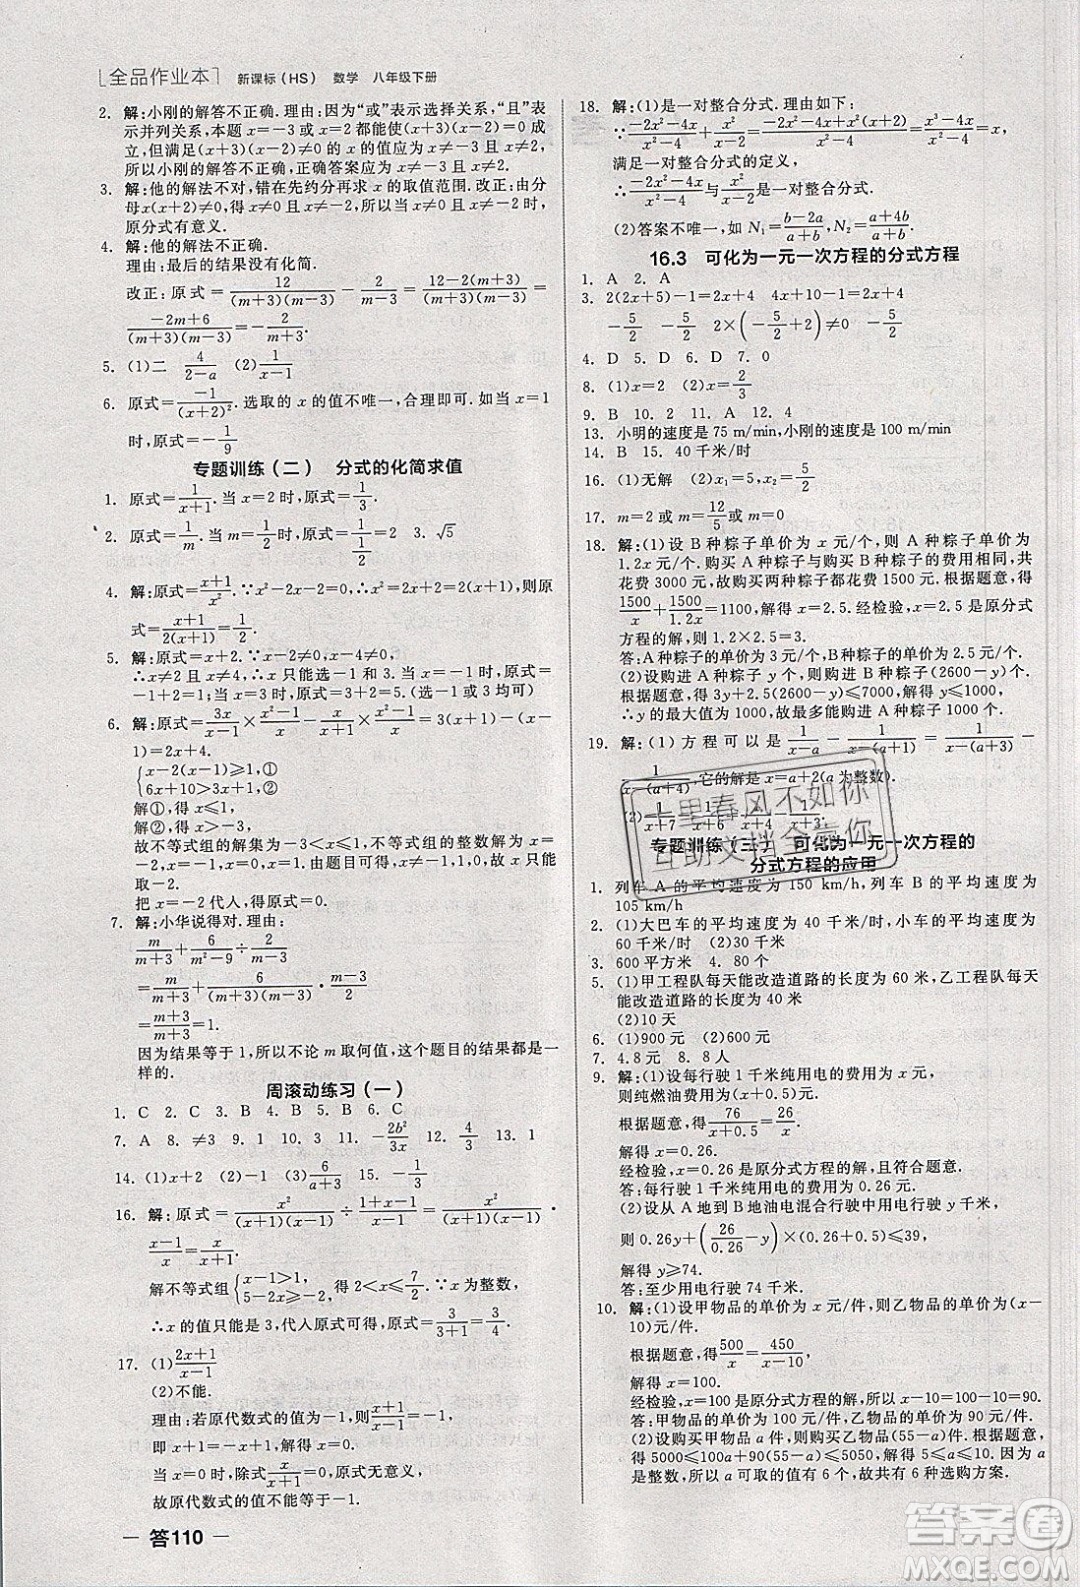 全品作业本 新课标(HS) 数学 八年级下册
2. 解:小刚的解答不正确.理由:因为“或”表示选择关系,“且”表
示并列关系,本题 x=-3 或 x=2 都能使(x+3)(x-2)=0 成
立,但满足(x+3)(x-2)≠0 的 x 的值应为 x≠-3 且 x≠2,
所以小刚的解答不正确,正确答案应为 x≠-3 且 x≠2.
3. 解:他的解法不对,错在先约分再求 x 的取值范围.改正:由分
母x(x+2)≠0,得 x≠0 且 x≠-2,即当 x≠0 且 x≠-2 时,
原分式有意义.
4. 解:他的解法不正确.
理由:最后的结果没有化简.
改正:原式=12/((m+3)(m-3))-2/(m-3)=(12-2(m+3))/((m+3)(m-3))=
(-2m+6)/((m+3)(m-3))=-2/(m+3).
5. (1)二 4/(2-a) (2)1/(x-1)
6. 原式=-1/(x+2)².选取的 x 的值不唯一,合理即可.如当 x=1
时,原式=-1/9
专题训练(二) 分式的化简求值
1. 原式=1/(x+1).当 x=2 时,原式=1/3.
2. 原式=1/m.当 m=1/2时,原式=1/(1/2)=2 3. √5
4. 解:原式=(x+1)/x².∵x²-2x-2=0,∴x²=2x+2=2(x+1),则原
式=(x+1)/(2(x+1))=1/2.
5. 解:原式=x+2.∵x-2≠0,x-4≠0,
∴x≠2 且 x≠4,∴x 只能选 1 或 3.当 x=-1 时,原式=
-1+2=1;当 x=3 时,原式=3+2=5.(选一种即可)
6. 解:原式=3x/(x-1)×(x²-1)/x-x/(x+1)×(x²-1)/x=3(x+1)-(x-
1)=2x+4.
{x-2(x-1)≥1,①
6x+10>3x+1,②
解①,得 x≤1,
解②,得 x>-3,
故不等式组的解集为-3<x≤1,故不等式组的整数解为 x=
-2,x=-1,x=0,x=1.又∵x≠±1,x≠0,∴x=-2.
把 x=-2 代入,得原式=0.
7. 解:小华说得对.理由:
m/(m+3)+6/(m²-9)÷2/(m-3)
=m/(m+3)+6/((m+3)(m-3))·(m-3)/2
=m/(m+3)+3/(m+3)
=(m+3)/(m+3)=1.
因为结果等于 1,所以不论 m 取何值,这个题目的结果都是一
样的.
周滚动练习(一)
1. C 2. C 3. B 4. B 5. B 6. C
7. A 8. ≠3 9. 1 10. -1 11. -2b²/3x 12. 4/3 13. 1
14. (1)x+2 (2)-1 (3)6/(a+3) 15. -1/4
16. 解:原式=x²/((x+1)(x-1))÷(1+x-1)/(x-1)=x²/((x+1)(x-1))·
(x-1)/x=x/(x+1).
解不等式组{x-1>1,
5-2x≥-2,得 2<x≤7/2.∵x 为整数,
∴x 的值只能是 3,代入原式可得,原式=3/(3+1)=3/4.
17. (1)(2x+1)/(x-1)
(2)不能.
理由:若原代数式的值为-1,则(x+1)/(x-1)=-1,
即 x+1=-(x-1),解得 x=0.
当 x=0 时,除式x/(x+1)=0,原式无意义,
故原代数式的值不能等于-1.
— 答110 —
18. 解:(1)是一对整合分式.理由如下:
∵(-2x²-4x)/(x²-4)+x²/(x-2)=(-2x²-4x+x²(x+2))/(x²-4)=(x³-4x)/(x²-4)=x,
满足一对整合分式的定义,
∴(-2x²-4x)/(x²-4)与x²/(x-2)是一对整合分式.
(2)答案不唯一,如 N₁=(b-2a)/(a+b),N₂=(a+4b)/(a+b).
16.3 可化为一元一次方程的分式方程
1. A 2. A
3. 2(2x+5)-1=2x+4 4x+10-1=2x+4
-5/2 -5/2 2×(-5/2+2)≠0 -5/2
4. D 5. D 6. D 7. 0
8. (1)x=2 (2)x=2/3
9. B 10. 2 11. A 12. 4
13. 小明的速度是 75 m/min,小刚的速度是 100 m/min
14. B 15. 40 千米/时
16. (1)无解 (2)x₁=5,x₂=5/2
17. m=2或 m=12/5或 m=0
18. 解:(1)设 B 种粽子单价为 x 元/个,则 A 种粽子单价为
1.2x 元/个.因为购买 A 种粽子与购买 B 种粽子的费用相同,共
花费 3000 元,故购买两种粽子都花费 1500 元.根据题意,得
1500/x+1500/1.2x=1100,解得 x=2.5.经检验,x=2.5 是原分式
方程的解,则 1.2×2.5=3.
答:A 种粽子的单价为 3 元/个,B 种粽子的单价为 2.5 元/个.
(2)设购进 A 种粽子 y 个,则购进 B 种粽子(2600-y)个.
根据题意,得 3y+2.5(2600-y)≤7000,解得 y≤1000,
∴y 的最大值为 1000,故最多能购进 A 种粽子 1000 个.
19. 解:(1)方程可以是1/(x-a)-1/(x-(a+1))=1/(x-(a+3))-
1/(x-(a+4)),它的解是 x=a+2(a 为整数).
(2)1/(x+7)-1/(x+6)=1/(x+4)-1/(x+3).
专题训练(三) 可化为一元一次方程的
分式方程的应用
1. 列车 A 的平均速度为 150 km/h,列车 B 的平均速度为
105 km/h
2. (1)大巴车的平均速度为 40 千米/时,小车的平均速度为
60 千米/时 (2)30 千米
3. 600 平方米 4. 80 个
5. (1)甲工程队每天能改造道路的长度为 60 米,乙工程队每天
能改造道路的长度为 40 米
(2)10 天
6. (1)900 元 (2)1000 元
7. 4.8 元 8. 8 人
9. 解:(1)设每行驶 1 千米纯用电的费用为 x 元,则每行驶 1 千米
纯燃油费用为(x+0.5)元.
根据题意,得76/(x+0.5)=26/x.
解得 x=0.26.
经检验,x=0.26 是原分式方程的解,且符合题意.
答:每行驶 1 千米纯用电的费用为 0.26 元.
(2)设从 A 地到 B 地油电混合行驶,用电行驶 y 千米,
则 0.26y+(26/0.26-y)×(0.26+0.5)≤39,
解得 y≥74.
答:至少用电行驶 74 千米.
10. 解:(1)设甲物品的单价为 x 元/件,则乙物品的单价为(x-
10)元/件.
根据题意,得500/x=450/(x-10).
解得 x=100.
经检验,x=100 是原分式方程的解,所以 x-10=100-10=90.
答:甲物品的单价为 100 元/件,乙物品的单价为 90 元/件.
(2)设购买甲物品 a 件,则购买乙物品(55-a)件.根据题意,
得 5000≤100a+90(55-a)≤5050,解得 5≤a≤10.因为 a
是整数,所以 a 可取的值有 6 个,故共有 6 种选购方案.
十里春风不如你
互助文挡全靠你
答案圈
MXQE.COM